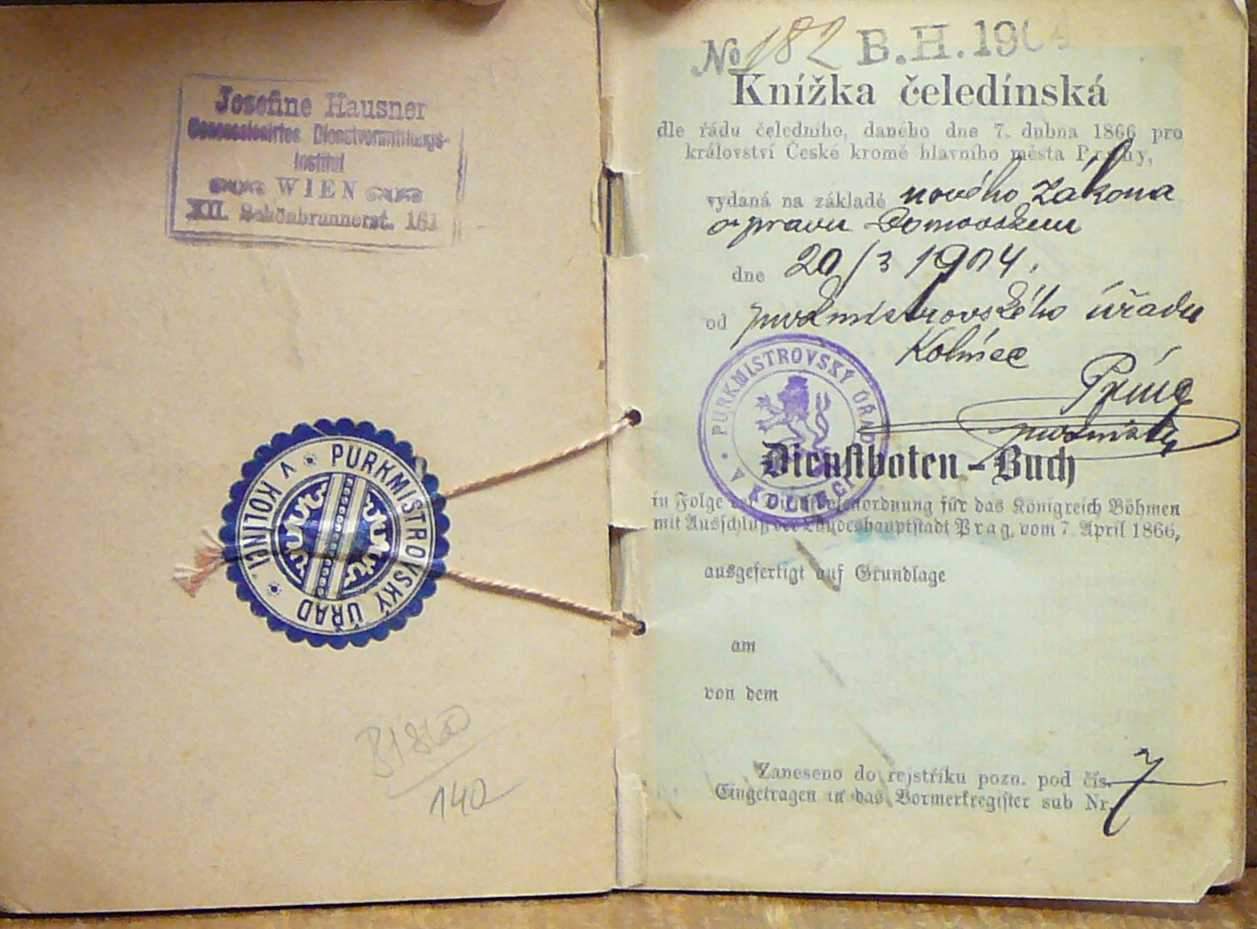 Josefine Hausner
Concessionirtes Dienstvermittlungs-
Institut
WIEN
XII. Schönbrunnerst. 161
PURKMISTROVSKÝ ÚŘAD
V KOLINCI
140
No 182 B.H. 1904
Knížka čeledínská
dle řádu čeledního, daného dne 7. dubna 1866 pro
království České kromě hlavního města Prahy,
vydaná na základě nového zákona
o právu Domovském
dne 20/3 1904.
od purkmistrovského úřadu
Kolinec
PURKMISTROVSKÝ ÚŘAD
V KOLINCI
purkmistr
Dienstboten-Buch
in Folge der Dienstbotenordnung für das Königreich Böhmen
mit Ausschluß der Landeshauptstadt Prag, vom 7. April 1866,
ausgefertigt auf Grundlage
am
von dem
Zaneseno do rejstříku pozn. pod čís. 7
Eingetragen in das Vormerkregister sub Nr.